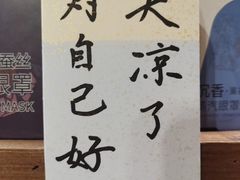 天凉了
对自己好
蚕丝
眼罩
MASK
沉香
汽眼罩